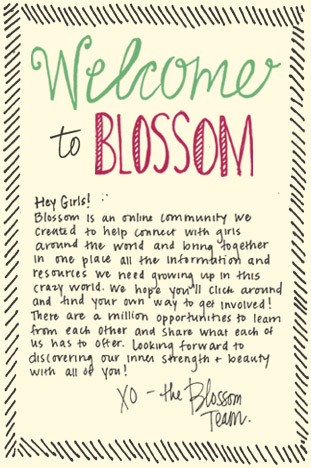 Welcome
to BLOSSOM
Hey Girls! :)
Blossom is an online community we
created to help connect with girls
around the world and bring together
in one place all the information and
resources we need growing up in this
crazy world. We hope you'll click around
and find your own way to get involved!
There are a million opportunities to learn
from each other and share what each of
us has to offer. Looking forward to
discovering our inner strength + beauty
with all of you!
XO - the Blossom
Team.